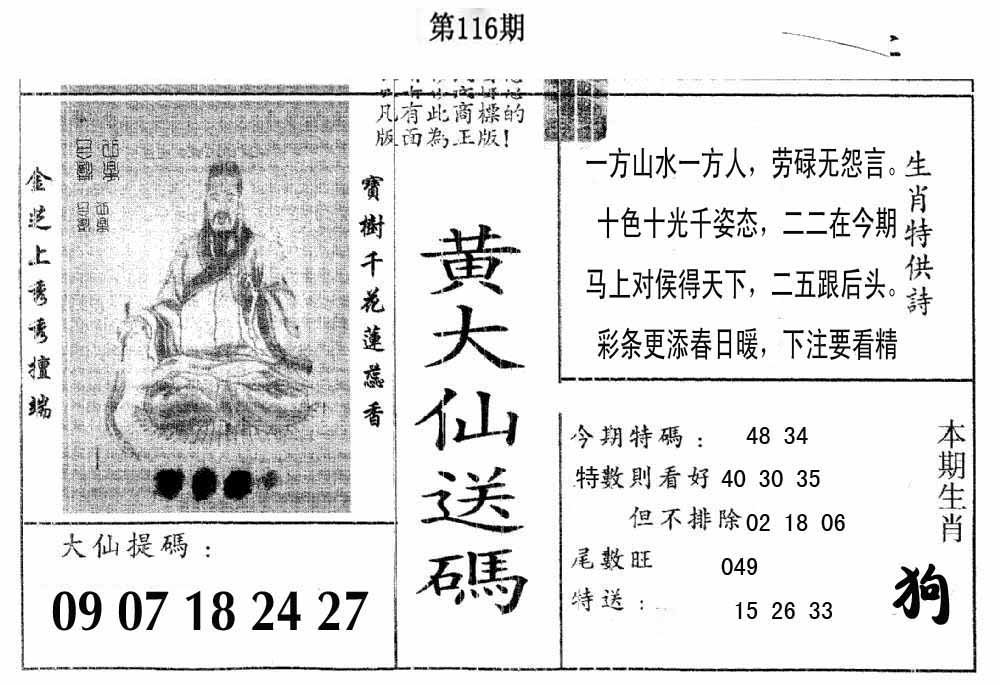 第116期
凡有此商標的
版面為正版!
金芝上秀秀擅端
寶樹千花蓮蕊香
大仙提碼：
09 07 18 24 27
黃大仙送碼
生肖特供詩
一方山水一方人，劳碌无怨言。
十色十光千姿态，二二在今期
马上对侯得天下，二五跟后头。
彩条更添春日暖，下注要看精
今期特碼： 48 34
特數則看好 40 30 35
但不排除 02 18 06
尾數旺 049
特送： 15 26 33
本期生肖
狗